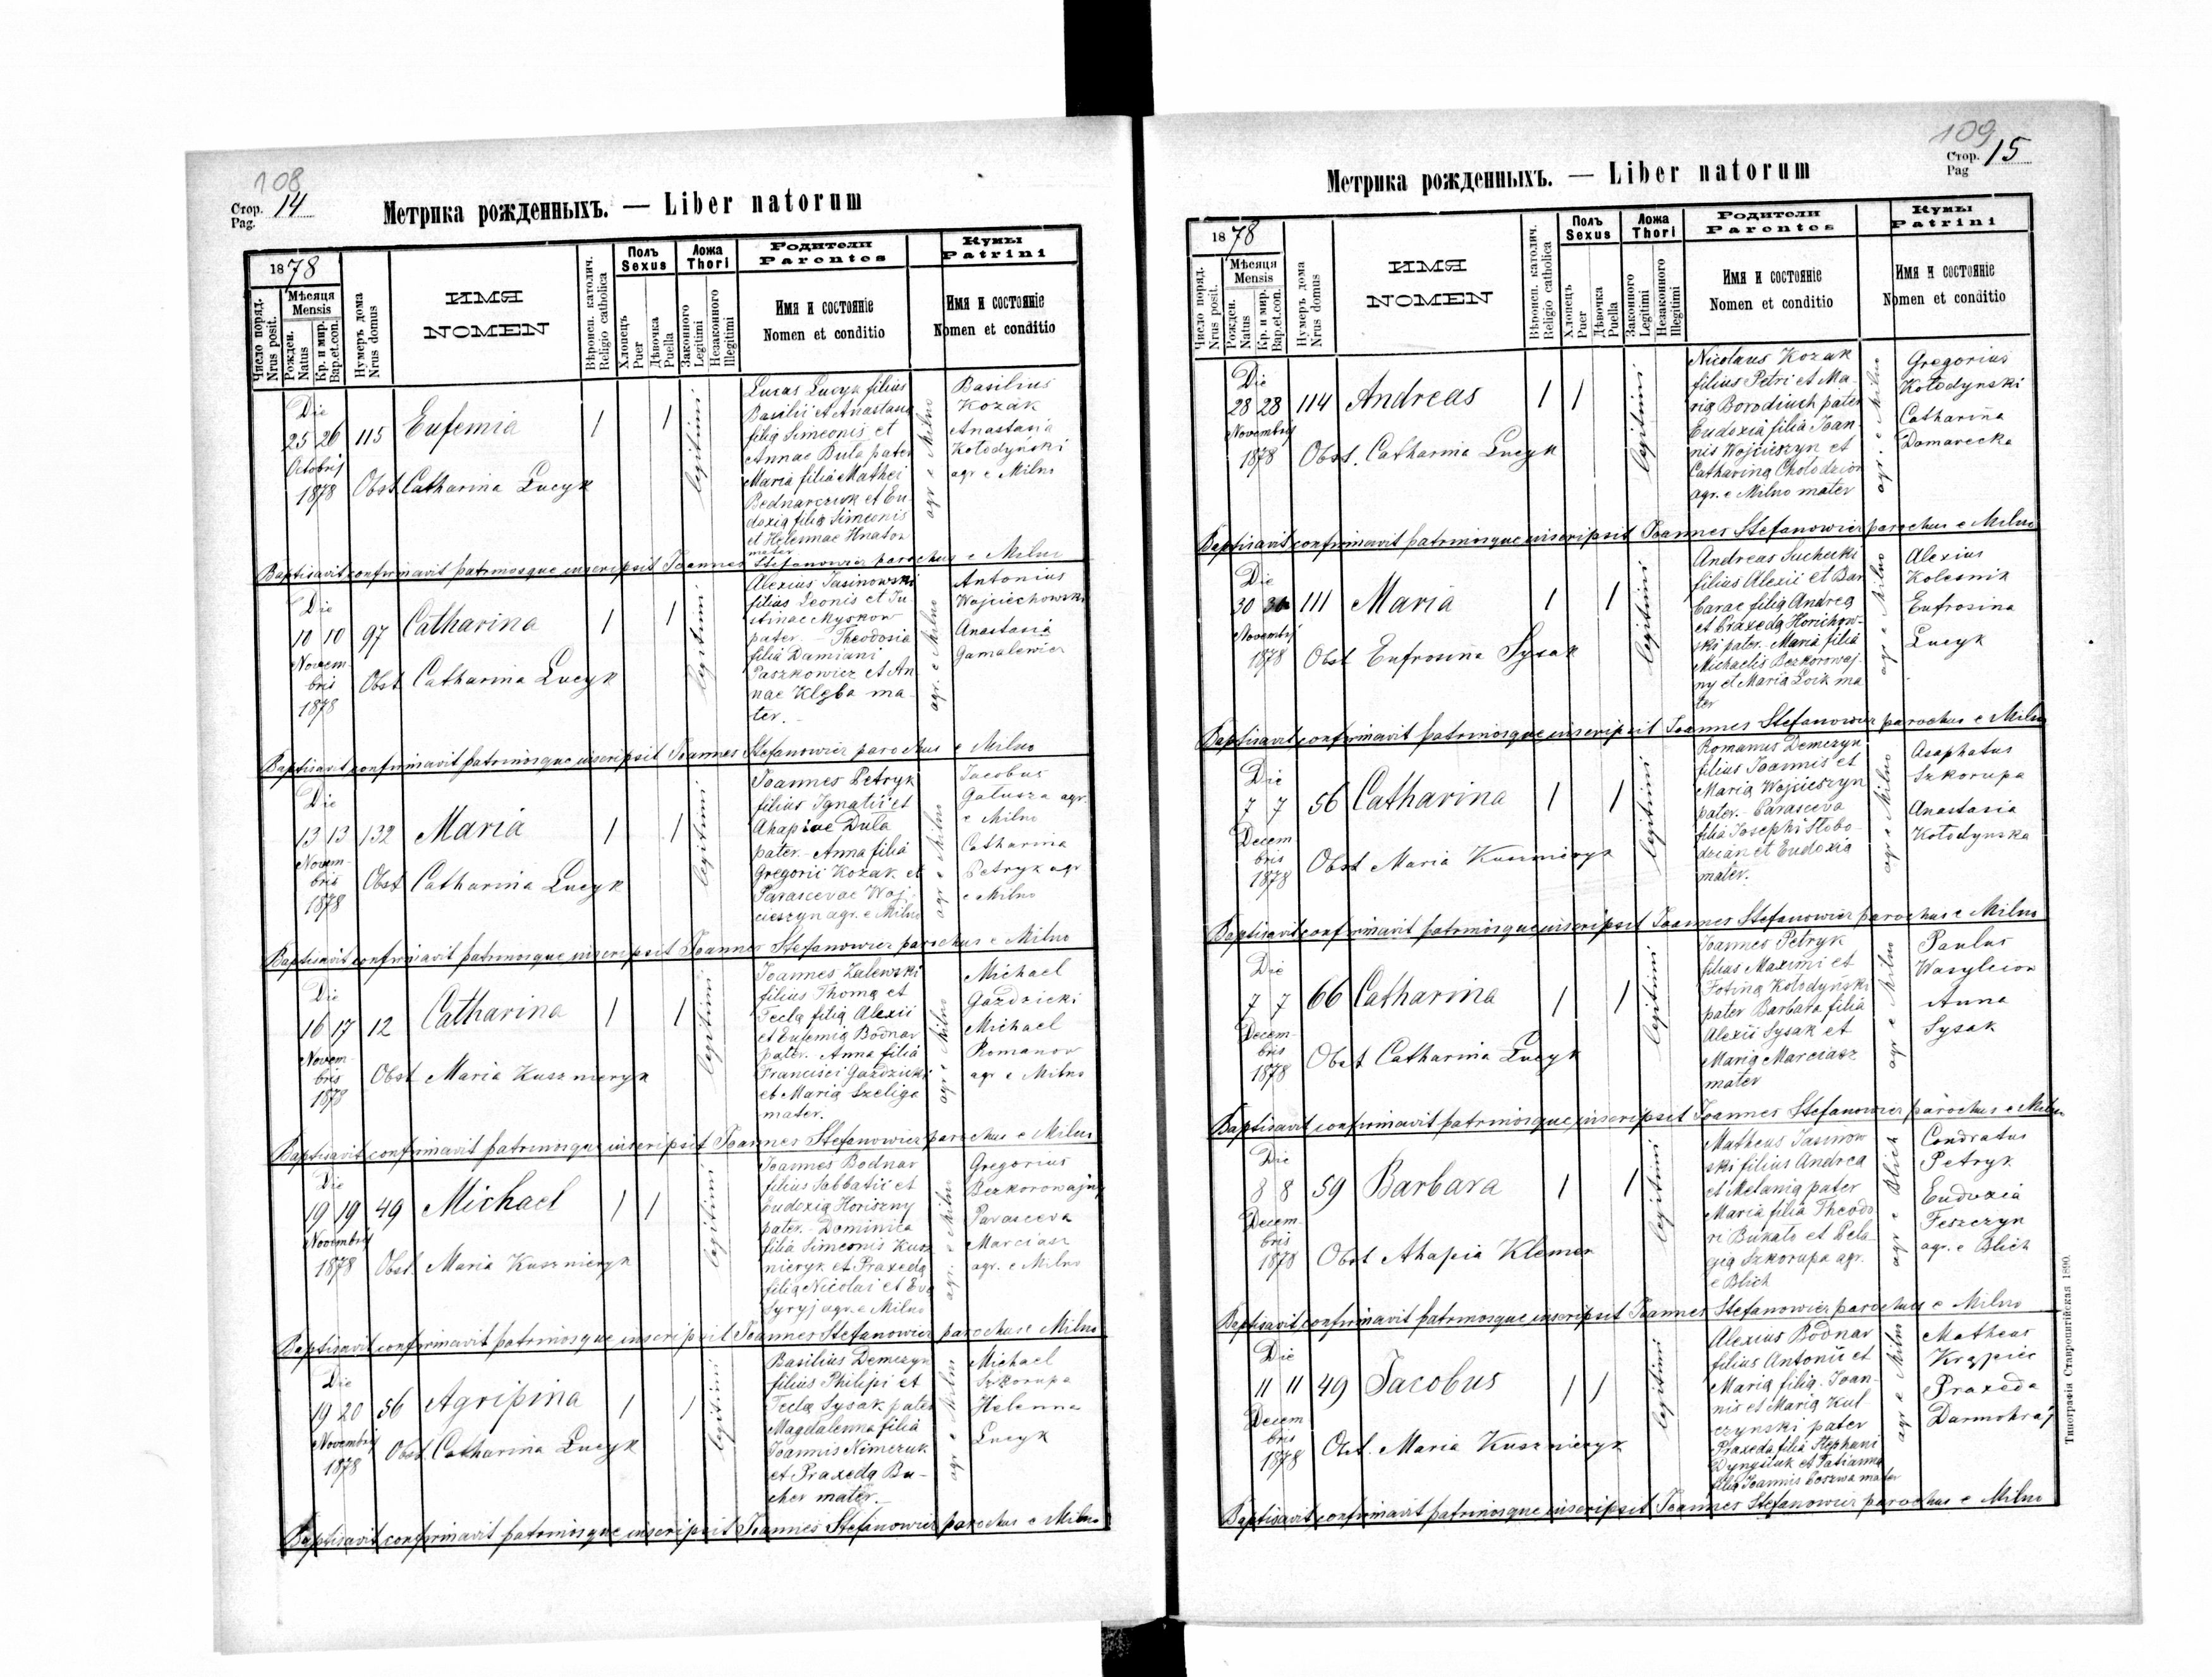 108
Стор. 14
Pag.
Метрика рожденныхъ. — Liber natorum
1878
Число поряд.
Nrus posit.
Мѣсяця
Mensis
Рожден.
Natus
Кр. и мир.
Bap.et.con.
Нумеръ дома
Nrus domus
ИМЯ
NOMEN
Вѣроисп. католич.
Religio catholica
Полъ
Sexus
Хлопецъ
Puer
Дѣвочка
Puella
Ложа
Thori
Законного
Legitimi
Незаконного
Illegitimi
Родители
Parentes
Имя и состояніе
Nomen et conditio
Кумы
Patrini
Имя и состояніе
Nomen et conditio
Die
25 26 115 Eufemia 1 1 legitimi
Octobrij
1878 Obst Catharina Lucyk
Lucas Lucyk filius
Basilii et Anastasia
filia Simeonis et
Annae Dula pater
Maria filia Mathei
Bednarczuk et Eu-
doxia filia Simeonis
et Helennae Hnatow
mater
agr e Milno
Basilius
Kozak
Anastasia
Kołodyński
agr e Milno
Baptisavit confirmavit patrinosque inscripsit Joannes Stefanowicz parochus e Milno
Die
10 10 97 Catharina 1 1 legitimi
Novem-
bris
1878 Obst Catharina Lucyk
Alexius Jasinowski
filius Leonis et Ju
stinae Myskow
pater. - Theodosia
filia Damiani
Paszkowicz et An
nae Klęba ma-
ter. -
agr. e Milno
Antonius
Wojciechowski
Anastasia
Gamalewicz
Baptisavit confirmavit patrinosque inscripsit Joannes Stefanowicz parochus e Milno
Die
13 13 132 Maria 1 1 legitimi
Novem-
bris
1878 Obst Catharina Lucyk
Joannes Petryk
filius Ignatii et
Ahapiae Dula
pater. - Anna filia
Gregorii Kozak et
Parascevae Woj-
cieszyn agr. e Milno
agr e Milno
Jacobus
Gałusza agr.
e Milno
Catharina
Petryk agr
e Milno
Baptisavit confirmavit patrinosque inscripsit Joannes Stefanowicz parochus e Milno
Die
16 17 12 Catharina 1 1 legitimi
Novem-
bris
1878 Obst Maria Kusznieryk
Joannes Zalewski
filius Thoma et
Tecla filia Alexii
et Eufemia Bodnar
pater. Anna filia
Francisci Gazdzicki
et Maria Szeliga
mater.
agr e Milno
Michael
Gazdzicki
Michael
Romanow
agr e Milno
Baptisavit confirmavit patrinosque inscripsit Joannes Stefanowicz parochus e Milno
Die
19 19 49 Michael 1 1 legitimi
Novembrij
1878 Obst. Maria Kusznieryk
Joannes Bodnar
filius Sabbatii et
Eudoxia Horiszny
pater. Dominica
filia Simeonis Kusz
nieryk et Praxeda
filia Nicolai et Eva
Syryj agr. e Milno
agr. e Milno
Gregorius
Bezkorowajny
Parasceva
Marciasz
agr. e Milno
Baptisavit confirmavit patrinosque inscripsit Joannes Stefanowicz parochus e Milno
Die
19 20 56 Agripina 1 1 legitimi
Novembrij
1878 Obst. Catharina Lucyk
Basilius Demczyn
filius Philipi et
Tecla Sysak pater
Magdalenna filia
Joannis Nimczuk
et Praxeda Bu-
cher mater. -
agr e Milno
Michael
Szkorupa
Helenna
Lucyk
Baptisavit confirmavit patrinosque inscripsit Joannes Stefanowicz parochus e Milno
109
Стор. 15
Pag
Метрика рожденныхъ. — Liber natorum
1878
Число поряд.
Nrus posit.
Мѣсяця
Mensis
Рожден.
Natus
Кр. и мир.
Bap.et.con.
Нумеръ дома
Nrus domus
ИМЯ
NOMEN
Вѣроисп. католич.
Religio catholica
Полъ
Sexus
Хлопецъ
Puer
Дѣвочка
Puella
Ложа
Thori
Законного
Legitimi
Незаконного
Illegitimi
Родители
Parentes
Имя и состояніе
Nomen et conditio
Кумы
Patrini
Имя и состояніе
Nomen et conditio
Die
28 28 114 Andreas 1 1 legitimi
Novembrij
1878 Obst. Catharina Lucyk
Nicolaus Kozak
filius Petri et Ma-
ria Borodiuch pater
Eudoxia filia Joan-
nis Wojcieszyn et
Catharina Chołodziow
agr. e Milno mater
agr. e Milno
Gregorius
Kołodynski
Catharina
Domarecka
Baptisavit confirmavit patrinosque inscripsit Joannes Stefanowicz parochus e Milno
Die
30 30 111 Maria 1 1 legitimi
Novembrij
1878 Obst Eufrosina Sysak
Andreas Suchecki
filius Alexii et Bar
barae filia Andrea
et Praxeda Horichow-
ski pater. Maria filia
Michaelis Bezkorowaj-
ny et Maria Łoik ma
ter
agr e Milno
Alexius
Kolesnik
Eufrosina
Lucyk
Baptisavit confirmavit patrinosque inscripsit Joannes Stefanowicz parochus e Milno
Die
7 7 56 Catharina 1 1 legitimi
Decem
bris
1878 Obst Maria Kusznieryk
Romanus Demczyn
filius Joannis et
Maria Wojcieszyn
pater. - Parasceva
filia Josephi Słobo-
dzian et Eudoxia
mater.
agr e Milno
Asaphatus
Szkorupa
Anastasia
Kołodynska
Baptisavit confirmavit patrinosque inscripsit Joannes Stefanowicz parochus e Milno
Die
7 7 66 Catharina 1 1 legitimi
Decem-
bris
1878 Obst Catharina Lucyk
Joannes Petryk
filius Maximi et
Fotina Kołodyński
pater Barbara filia
Alexii Sysak et
Maria Marciasz
mater
agr e Milno
Paulus
Wasylciow
Anna
Sysak
Baptisavit confirmavit patrinosque inscripsit Joannes Stefanowicz parochus e Milno
Die
8 8 59 Barbara 1 1 legitimi
Decem-
bris
1878 Obst Ahapia Klemen
Matheus Jasinow
ski filius Andrea
et Melania pater
Maria filia Theodo
ri Bukato et Pela-
gia Szkorupa agr.
e Blich
agr e Blich
Condratus
Petryk
Eudoxia
Feszczyn
agr. e Blich
Baptisavit confirmavit patrinosque inscripsit Joannes Stefanowicz parochus e Milno
Die
11 11 49 Jacobus 1 1 legitimi
Decem
bris
1878 Obst. Maria Kusznieryk
Alexius Bodnar
filius Antonii et
Maria filia Joan-
nis et Maria Kul
czynski pater
Praxeda filia Stephani
Dynysiuk et Tatianna
filia Joannis Coszwa mater
agr e Milno
Matheus
Krąpiec
Praxeda
Darmohraj
Baptisavit confirmavit patrinosque inscripsit Joannes Stefanowicz parochus e Milno
Типографія Ставропигійская 1890.